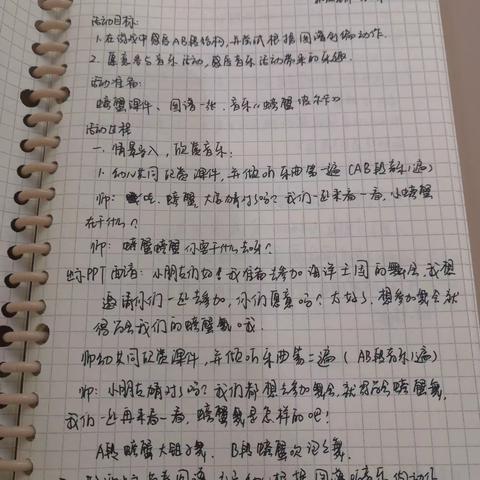 活动目标:
1. 在游戏中感应AB段结构,并尝试根据图谱创编动作.
2. 愿意参与音乐活动,感应音乐活动带来的乐趣.
活动准备:
螃蟹课件、图谱一张、音乐《螃蟹波尔卡》
活动过程
一、情景导入,欣赏音乐:
1. 幼儿共同欣赏课件,并倾听乐曲第一遍(AB段音乐1遍)
师: 吔,螃蟹,大家猜对了吗?我们一起来看一看,小螃蟹
在干什么?
师: 螃蟹螃蟹你要干什么去呀?
出示PPT 图谱: 小朋友们好!我准备去参加海洋王国的舞会,我想
邀请你们一起去参加,你们愿意吗?太好了,想参加舞会就
得学会我们的螃蟹舞哦.
师幼共同欣赏课件,并倾听乐曲第二遍(AB段音乐1遍)
师: 小朋友猜对了吗?我们都想去参加舞会,就要学会螃蟹舞,
我们一起再来看一看,螃蟹舞是怎样的吧!
A段螃蟹大钳子舞. B段螃蟹吹泡泡舞.